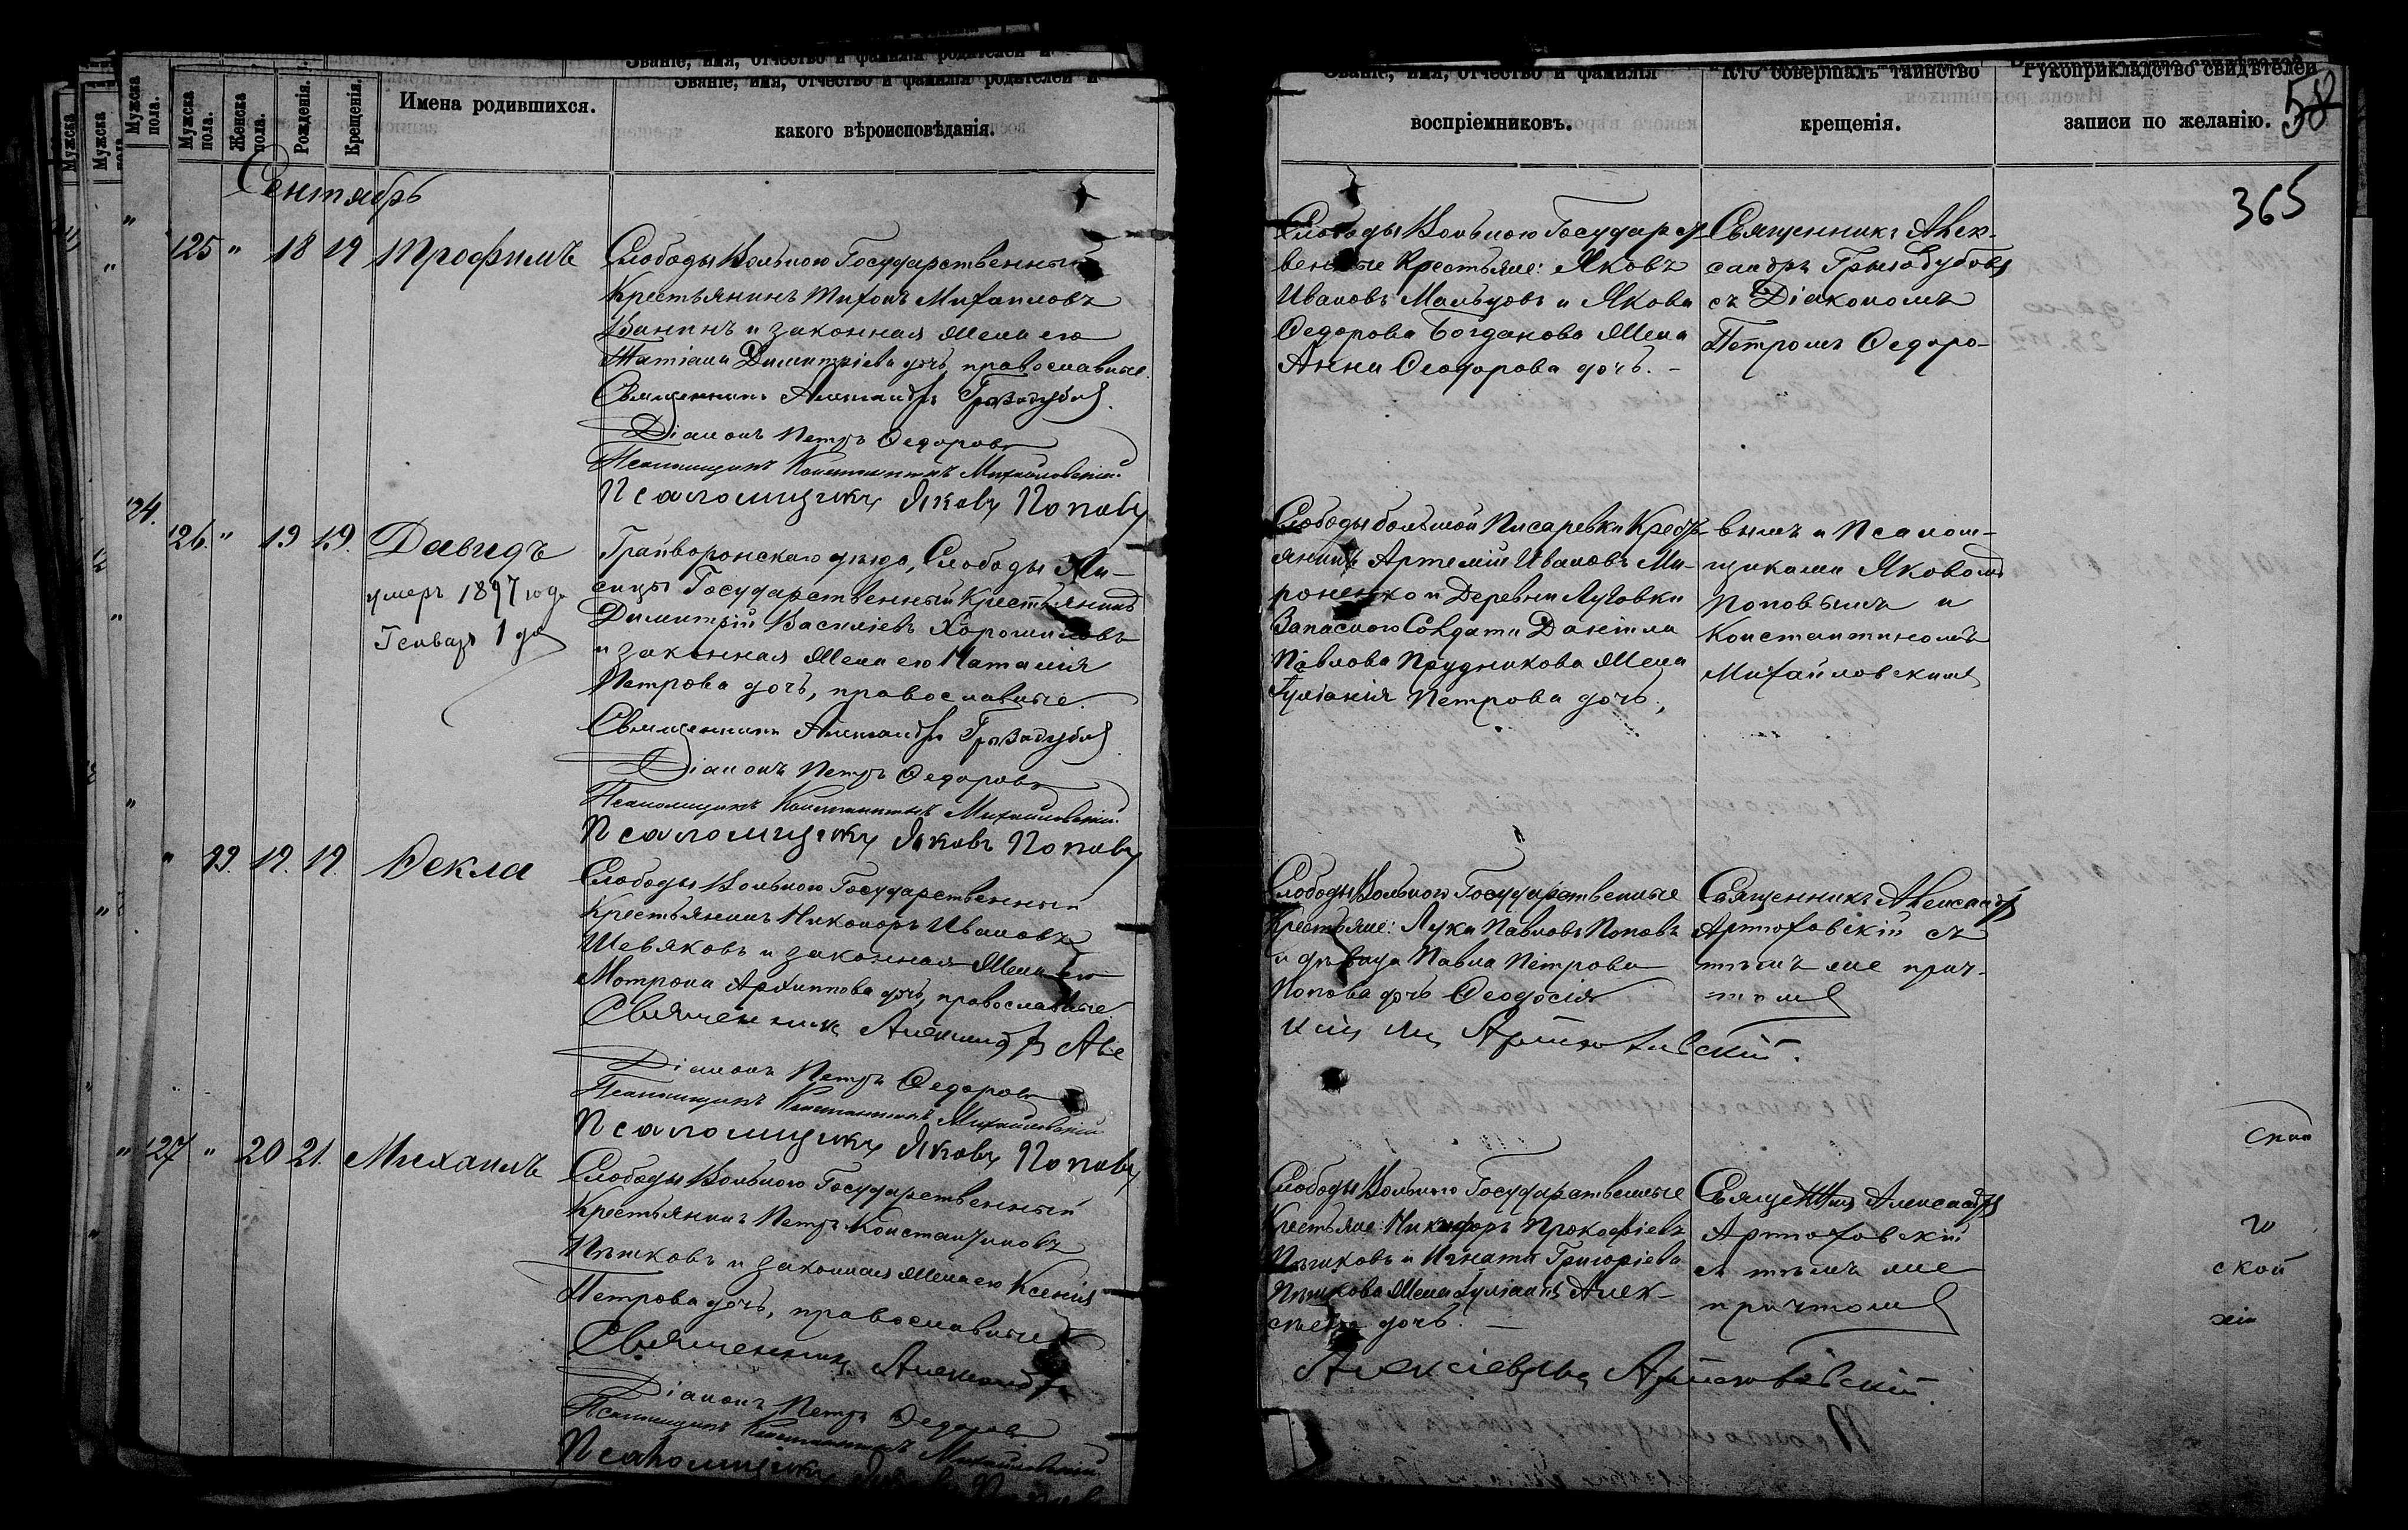 Званіе, имя, отчество и фамилія родителей и
Мужска пола.
Мужска пола.
Женска пола.
Рожденія.
Крещенія.
Имена родившихся.
Званіе, имя, отчество и фамилія родителей и
какого вѣроисповѣданія.
Сентябрь
125 " 18 19 Трофимъ
Слободы Вольного Государственный
Крестьянинъ Тихонъ Михаиловъ
и законная жена его
Татіана Димитріева дочь, православные.
Священникъ Александръ
Діаконъ Петръ Ѳедоровъ
Псаломщикъ Константинъ Михайловскій
Псаломщикъ Яковъ Поповъ
124.
126. " 19 19. Давидъ
умеръ 1897 года
Генваря 1 дня
Грайворонскаго уѣзда, Слободы Ли-
сицы Государственный Крестьянинъ
Димитрій Василіевъ Хорошиловъ
и законная жена его Наталія
Петрова дочь, православные.
Священникъ Александръ
Діаконъ Петръ Ѳедоровъ
Псаломщикъ Константинъ Михайловскій
Псаломщикъ Яковъ Поповъ
" 99. 19. 19. Ѳекла
Слободы Вольного Государственный
Крестьянинъ Никоноръ Ивановъ
Шевяковъ и законная жена его
Мотрона Архиппова дочь, православные.
Священникъ Александръ Але
Діаконъ Петръ Ѳедоровъ
Псаломщикъ Константинъ Михайловскій
Псаломщикъ Яковъ Поповъ
" 127 " 20 21. Михаилъ
Слободы Вольного Государственный
Крестьянинъ Петръ Константиновъ
Пѣшковъ и законная жена его Ксенія
Петрова дочь, православные
Священникъ Александръ
Діаконъ Петръ Ѳедоровъ
Псаломщикъ Константинъ Михайловскій
Псаломщикъ
Званіе, имя, отчество и фамилія
воспріемниковъ.
Кто совершалъ таинство
крещенія.
Рукоприкладство свидѣтелей
записи по желанію.
58
365
Слободы Вольного Государст-
венные Крестьяне: Яковъ
Ивановъ Мальцовъ и Якова
Ѳедорова Богданова жена
Анна Ѳеодорова дочь.
Священникъ Алек-
сандръ
съ Діакономъ
Петромъ Ѳедоро-
Слободы большой Писаревки Кресть-
янинъ Артемій Ивановъ Ми-
роненко и Деревни Луговки
Запасного Солдата Даніила
Павлова Прудникова жена
Іуліанія Петрова дочь,
вымъ и Псалом-
щиками Яковомъ
Поповымъ и
Константиномъ
Михайловскимъ
Слободы Вольного Государственные
Крестьяне: Лука Павловъ Поповъ
и дѣвица Павла Петрова
Попова дочь Ѳеодосія
Священникъ Александръ
Артюховскій съ
тѣмъ же прич-
томъ
Слободы Вольного Государственные
Крестьяне: Никифоръ Прокофіевъ
Пѣшковъ и Игнатія Григоріева
Пѣшкова жена Іуліанія Алек-
сѣева дочь.
Священникъ Александръ
Артюховскій
съ тѣмъ же
причтомъ
Алексіевъ Артюховскій
ской